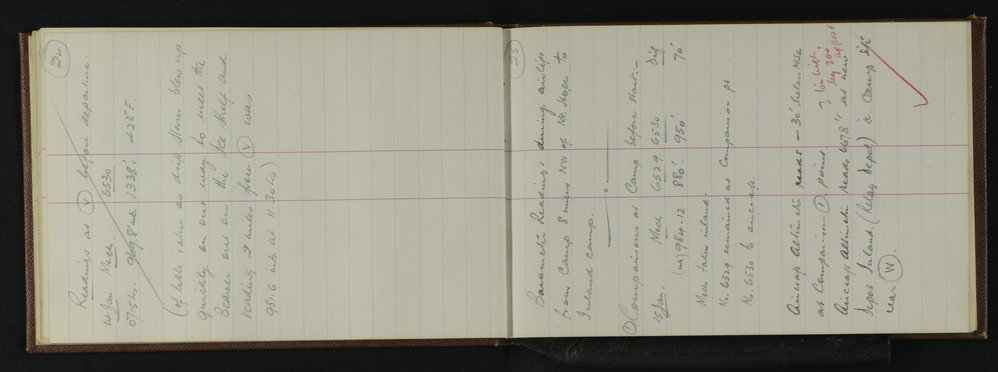 24
Readings at (V) before departure
14 Jan. Mech. 6530
0715 hr. 969.8 mb. 1338'. +23°F.
(of little value as drift storm blew up
quickly on our way to meet the
Beaver out on the Ice Shelf and
reading 2 miles from (V) was
981.6 mb at 11.30 hr)
25
Barometric Readings during airlift
from Camp 8 miles NW of Mt. Hope to
Inland camp.
① Comparisons at Camp before start:-
15 Jan. Mech 6529. 6530 Dif
(mb) 984.12 880'. 950' 70'.
Mech taken inland.
No. 6529 remained at Comparison pt.
No. 6530 to aircraft
Aircraft Altimeter reads -30' below Mech
at Comparison ① point.
? 100 high
Aircraft Altimeter reads 6678' at new
Depot Inland. (Relay Depot) is Camp
near (W).